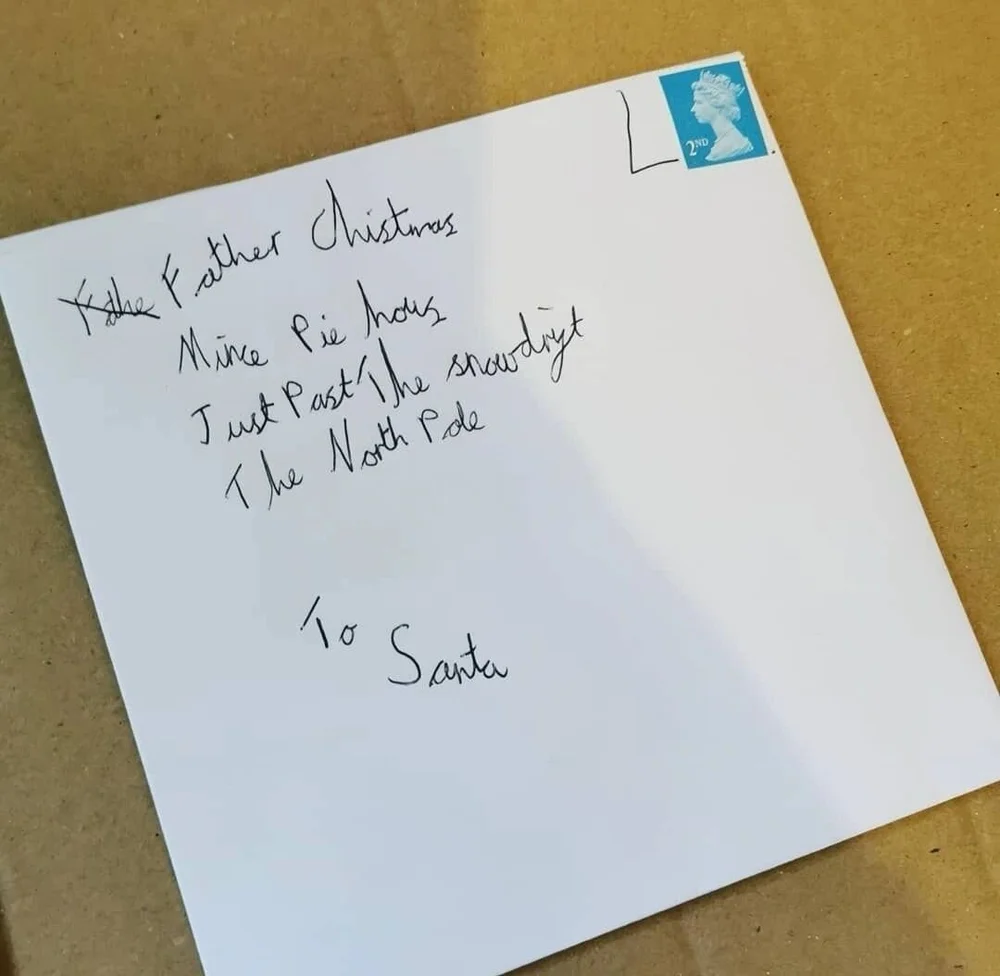 2ND
Father Christmas
Mince Pie hous
Just Past The snowdrift
The North Pole
To
Santa